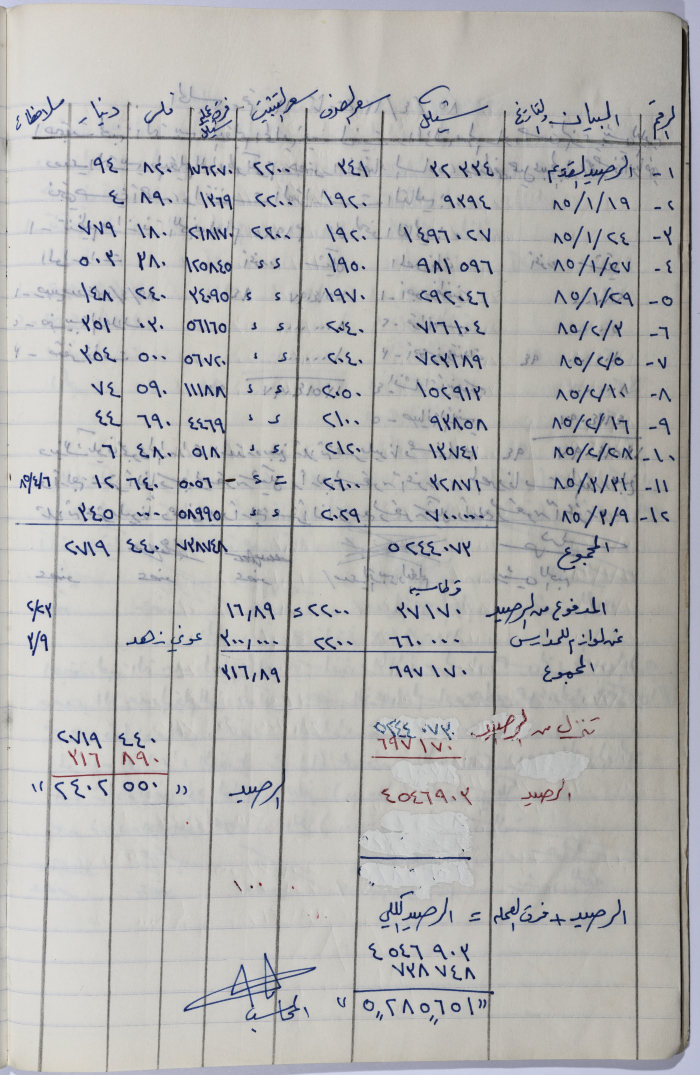 الرقم البيان والتاريخ شيكل سعر الصرف سعر التثبيت فرق عملة شيكل فلس دينار ملاحظات
١- الرصيد القديم ٣٢٣٣٤ ٣٤١ ٢٢٠٠ ١٧٦٢٧٠ ٨٢٠ ٩٤
٢- ٨٥/١/١٩ ٩٣٩٤ ١٩٢٠ ٢٢٠٠ ١٣٦٩ ٨٩٠ ٤
٣- ٨٥/١/٢٤ ١٤٩٦٠٢٧ ١٩٢٠ ٢٢٠٠ ٢١٨١٧٠ ١٨٠ ٧٧٩
٤- ٨٥/١/٢٧ ٩٨١٥٩٦ ١٩٥٠ ء ء ١٢٥٨٤٥ ٣٨٠ ٥٠٣
٥- ٨٥/١/٢٩ ٢٩٢٠٤٦ ١٩٧٠ ء ء ٣٤٠٩٥ ٢٤٠ ١٤٨
٦- ٨٥/٢/٣ ٧١٦١٠٤ ٢٠٤٠ ء ء ٥٦١٦٥ ٠٢٠ ٣٥١
٧- ٨٥/٢/٥ ٧٢٣١٨٩ ٢٠٤٠ ء ء ٥٦٧٢٠ ٥٠٠ ٣٥٤
٨- ٨٥/٢/١٠ ١٥٢٩١٢ ٢٠٥٠ ء ء ١١١٨٨ ٥٩٠ ٧٤
٩- ٨٥/٢/١٦ ٩٣٨٥٨ ٢١٠٠ ء ء ٤٤٦٩ ٦٩٠ ٤٤
١٠- ٨٥/٢/٢٨ ١٣٧٤١ ٢١٢٠ ء ء ٥١٨ ٤٨٠ ٦
١١- ٨٥/٣/٣١ ٣٢٨٧١ ٢٦٠٠ = ء - ٥٠٥٦ ٦٤٠ ١٢ ٨٥/٤/٦
١٢- ٨٥/٣/٩ ٧٠٠٠٠٠ ٢٠٢٩ ء ء ٥٨٩٩٥ ٠٠٠ ٣٤٥
المجموع ٥٢٤٤٠٧٣ ٧٣٨٧٤٨ ٤٤٠ ٢٧١٩
قرطاسيه
المدفوع من الرصيد ٣٧١٧٠ ٢٢٠٠ ء ١٦,٨٩ ٢/٢٣
عن لوازم للمدارس ٦٦٠٠٠٠ ٢٢٠٠ ٣٠٠,٠٠٠ عوني زهد ٣/٩
المجموع ٦٩٧١٧٠ ٣١٦,٨٩
تنزيل من الرصيد ٥٢٤٤٠٧٣ ٤٤٠ ٢٧١٩
٦٩٧١٧٠ ٨٩٠ ٣١٦
الرصيد ٤٥٤٦٩٠٣ الرصيد " ٥٥٠ ٢٤٠٢ "
١٠٠
الرصيد + فرق العمله = الرصيد الكلي
٤٥٤٦٩٠٣
٧٣٨٧٤٨
" ٥,,٢٨٥,,٦٥١ "
المحاسب